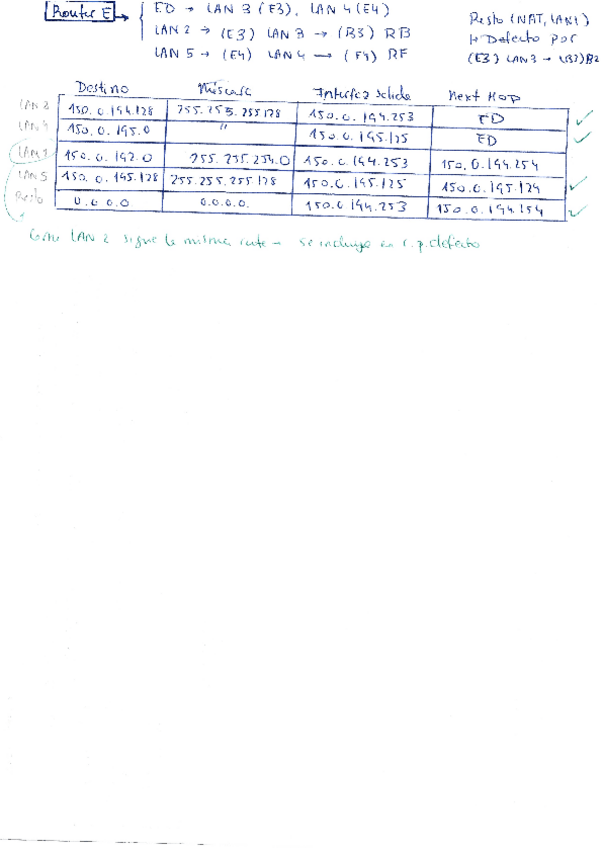 Router E → ED → LAN 3 (E3), LAN 4 (E4)
LAN 2 → (E3) LAN 3 → (B3) RB
LAN 5 → (E4) LAN 4 → (F4) RF
Resto (NAT, LAN1)
↳ Defecto por
(E3) LAN 3 → (B3) RB
Destino Máscara Interfaz salida Next Hop
LAN 3 150.0.194.128 255.255.255.128 150.0.194.253 ED ✓
LAN 4 150.0.195.0 " 150.0.195.125 ED ✓
LAN 2 150.0.192.0 255.255.254.0 150.0.194.253 150.0.194.254
LAN 5 150.0.195.128 255.255.255.128 150.0.195.125 150.0.195.124 ✓
Resto 0.0.0.0 0.0.0.0. 150.0.194.253 150.0.194.254 ✓
Como LAN 2 sigue la misma ruta → se incluye en r.p.defecto